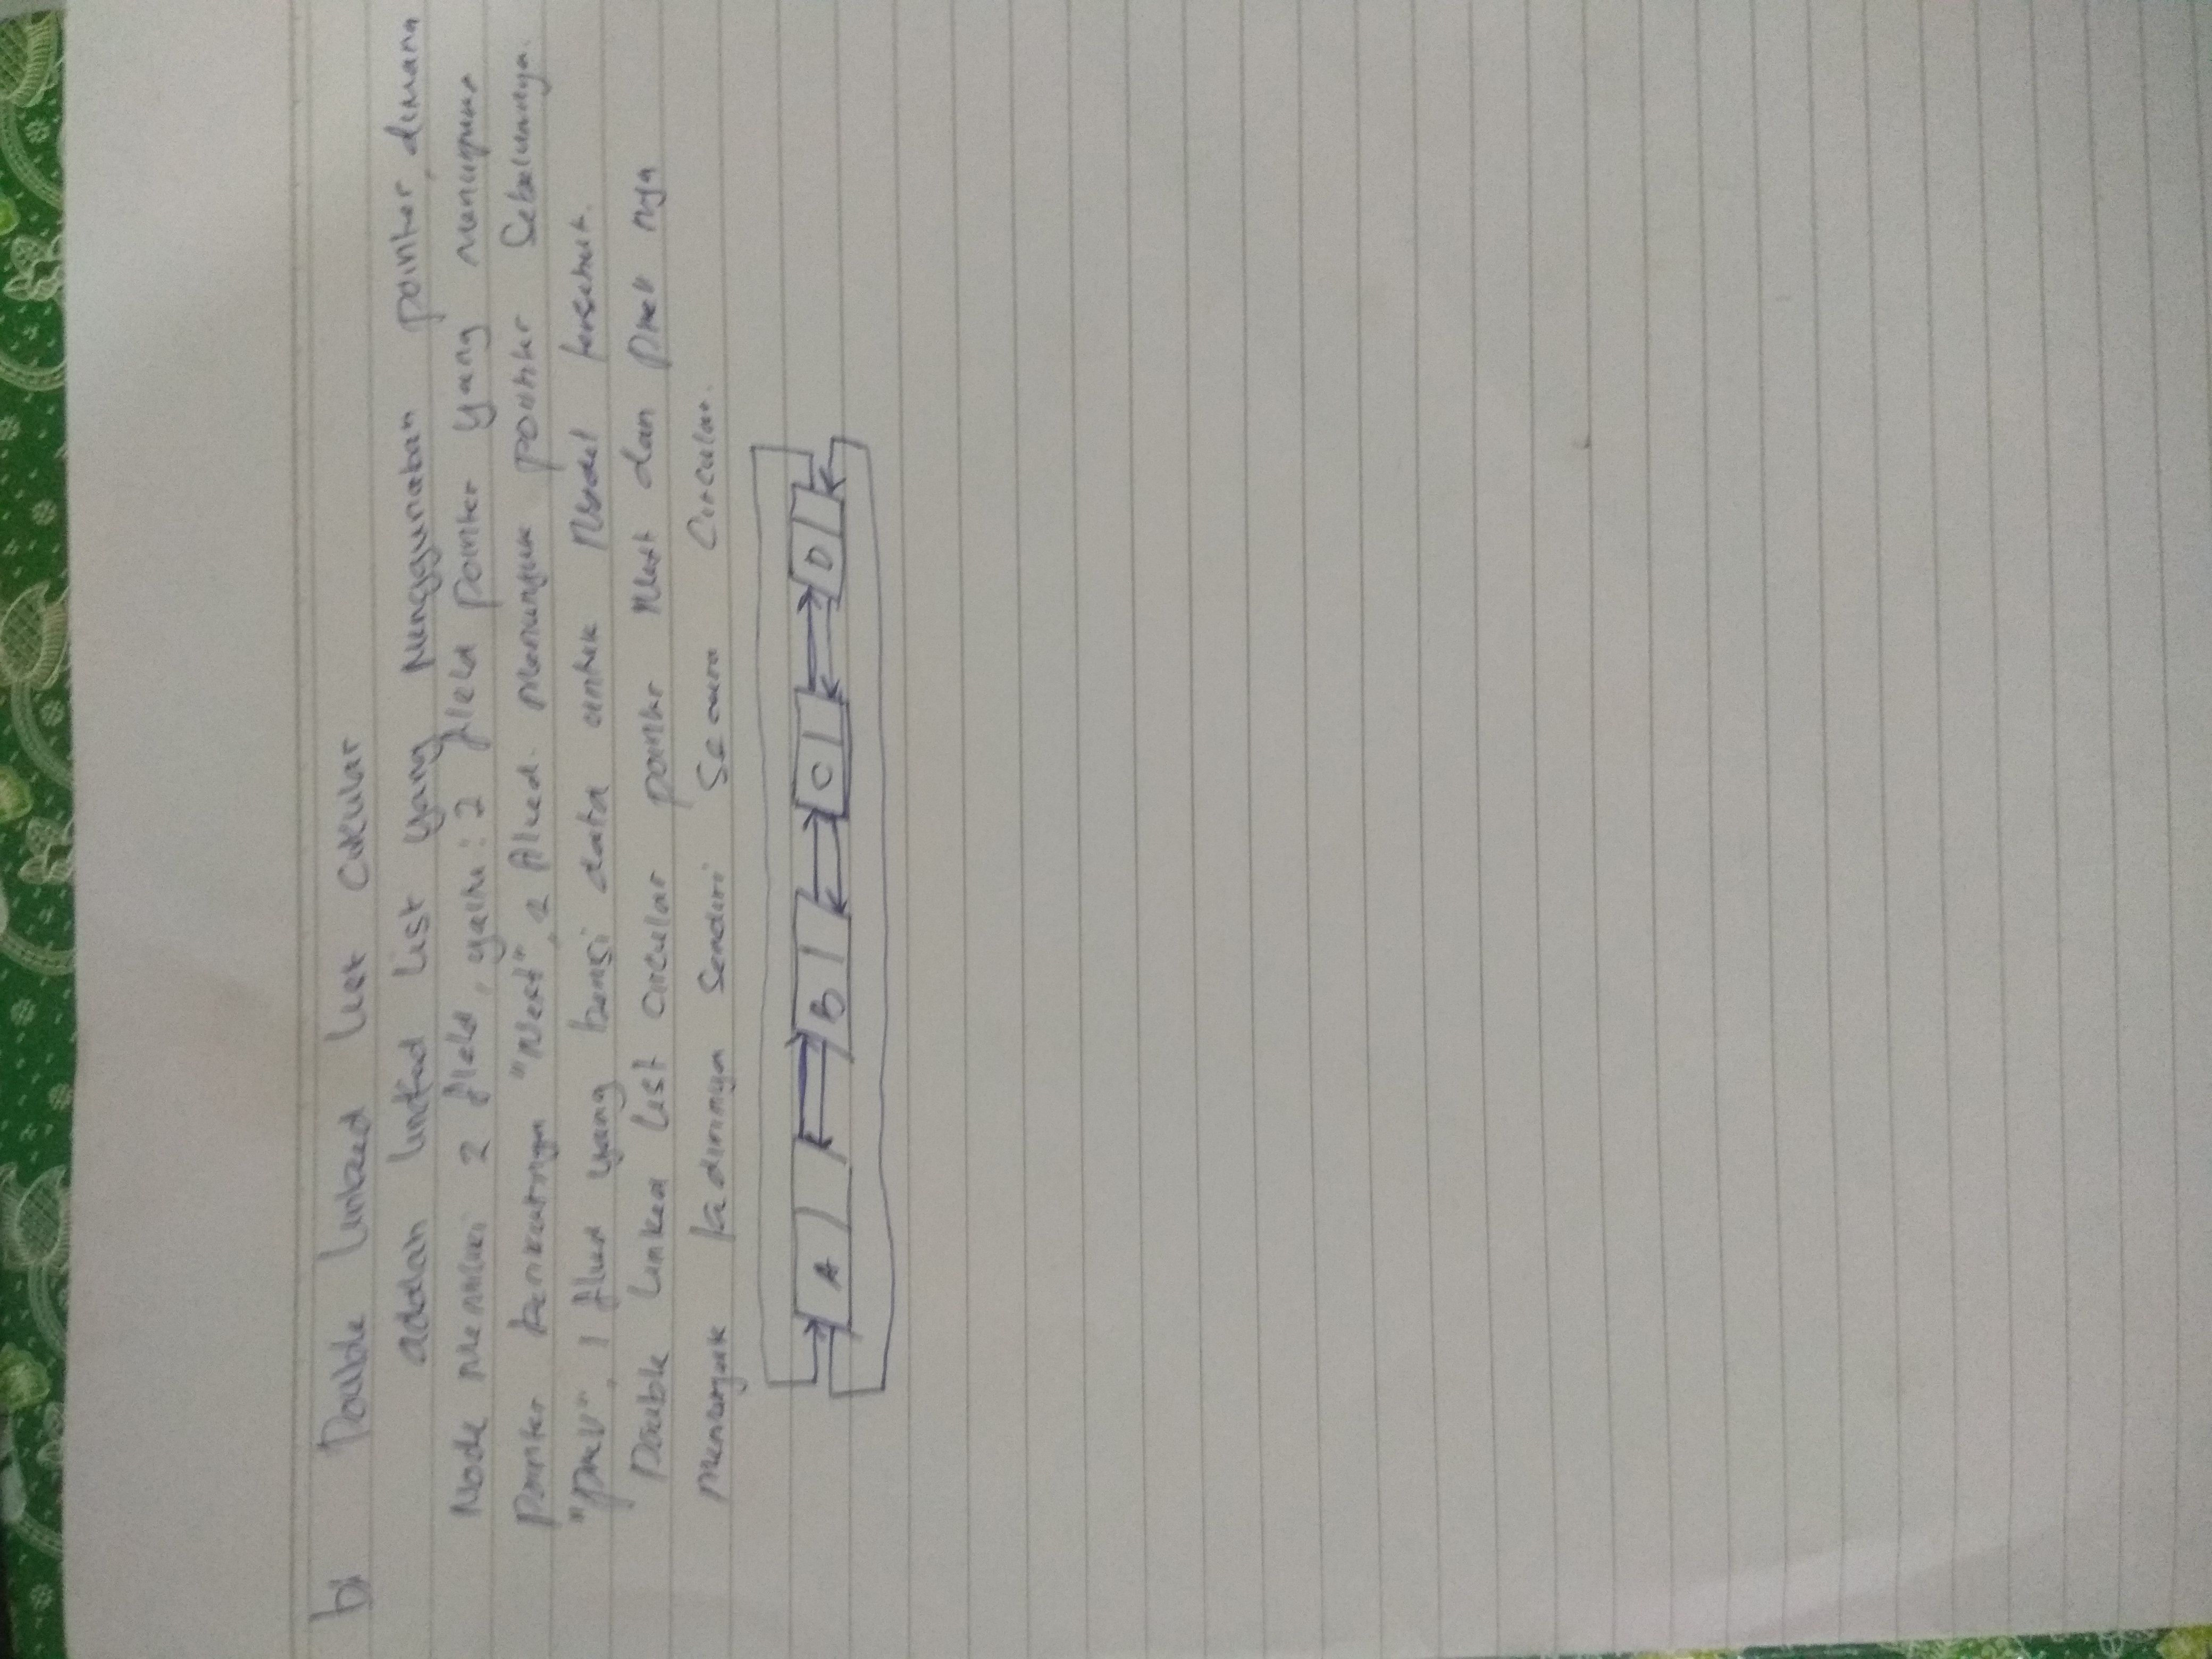 b) Double linked list circular
adalah linked list yang menggunakan pointer, dimana
Node memiliki 2 field, yaitu : 2 field pointer yang menunjuk
pointer berikutnya "Next", 2 filed menunjuk pointer Sebelumnya
"prev", 1 filed yang berisi data untuk Node tersebut.
Double linked list circular pointer next dan prev nya
menunjuk kedirinya sendiri Secara Circular.
A B C D